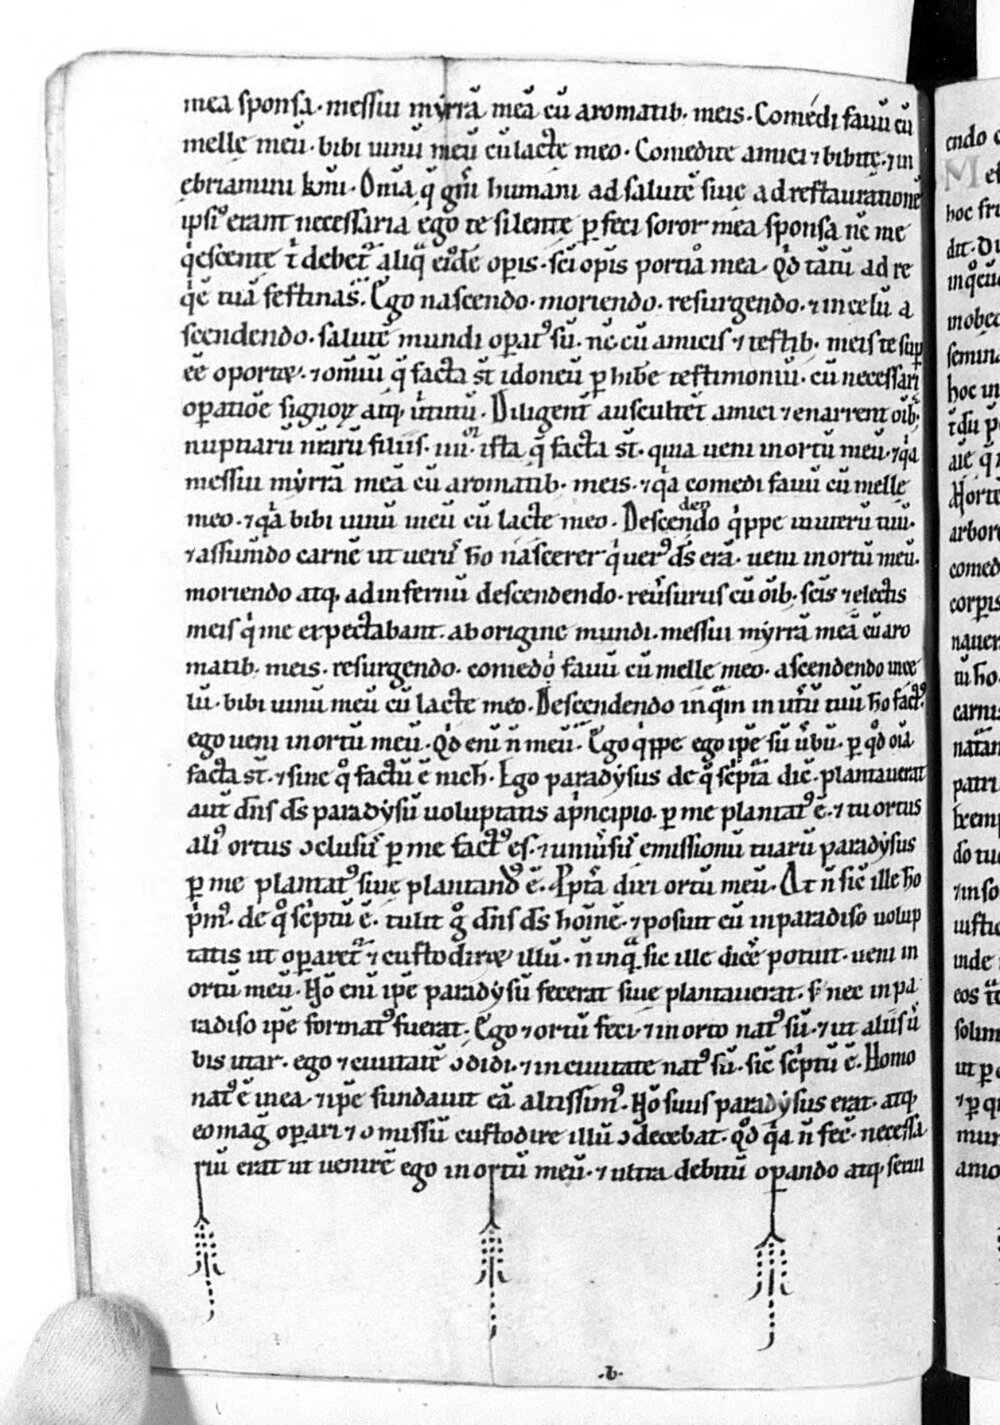 mea sponsa · messui myrrā meā cū aromatib; meis · Comedi fauū cū
melle meū · bibi uinū meū cū lacte meo · Comedite amici ⁊ bibite · ⁊ in
ebriamini kmi · Omīa q̄ gn̄i humani ad salutē siue ad restaurationē
ipsiꝰ erant necessaria ego te silente ꝑfeci soror mea sponsa nē me
q̇escente t̄ debet᷑ aliq̄ eiꝰdē opis · sci opis portiā mea · Qd tātū ad re
q̇ē tuā festinas · Ego nascendo · moriendo · resurgendo · ⁊ in celū a
scendendo · salutē mundi opatꝰ sū · nē cū amicis ⁊ testib; meis te sup
eē oportꝫ · ⁊ omiū q̄ facta st idoneū phibe testimoniū · cū necessari
opatiōe signoꝝ atq; uirtutū · Diligent᷑ auscultēt amici ⁊ enarrent oib;
nuptiarū nr̄arū filiis · ista q̄ facta st · quia ueni in ortū meū · ⁊ q̇a
messui myrrā meā cū aromatib; meis · ⁊ q̇a comedi fauū cū melle
meo · ⁊ q̇a bibi uinū meū cū lacte meo · Descendendo q̇ppe in uterū tuū ·
⁊ assumdo carnē ut uerꝰ ho nascerer q̇ uerꝰ ds erā · ueni in ortū meū ·
moriendo atq; ad infernū descendendo · reũsurus cū oib; scis ⁊ electis
meis q̇ me expectabant · ab origine mundi · messui myrrā meā cū aro
matib; meis · resurgendo · comedo fauū cū melle meo · ascendendo in ce
lū · bibi uinū meū cū lacte meo · Descendendo inq̄m in ut᷑ū tuū ho factꝰ ·
ego ueni in ortū meū · Qd enī n̄ meū · Ego q̇ppe ego ipe sū u᷑bū · p qd oia
facta st · ⁊ sine q° factū ē nich · Ego paradysus de q° scpta dic · plantauerat
aut dns ds paradysū uoluptatis a pncipio · p me plantatꝰ ē · ⁊ tu ortus
aliꝰ ortus ↄclusꝰ p me factꝰ es · ⁊ uniũsꝰ emissionū tuarū paradysus
p me plantatꝰ siue plantandꝰ ē · Ppt̄a dixi ortū meū · At n̄ sic ille ho
pmꝰ · de q° scptū ē · tulit g° dns ds hoinē · ⁊ posuit eū in paradiso uolup
tatis ut oparet᷑ ⁊ custodirꝫ illū · n̄ inq̄ sic ille dicē potuit · ueni in
ortū meū · Nō enī ipe paradysū fecerat siue plantauerat · s; nec in pa
radiso ipe formatꝰ fuerat · Ego ⁊ ortū feci · ⁊ in orto natꝰ sū · ⁊ ut aliis u᷑
bis utar · ego ⁊ ciuitatē ↄdidi · ⁊ in ciuitate natꝰ sū · sic scptū ē · Homo
natꝰ ē in ea · ⁊ ipe fundauit eā altissimꝰ · Nō suus paradysus erat · atq;
eo mag opari ⁊ ↄmissū custodire illū ↄdecebat · Qd q̇a n̄ fec · necessa
riū erat ut uenirē ego in ortū meū · ⁊ ultra debitū opando atq; serui
· b ·
endo
hoc fru
dit ·
arbore
comed
corpis
carnis
patri
solum
amo